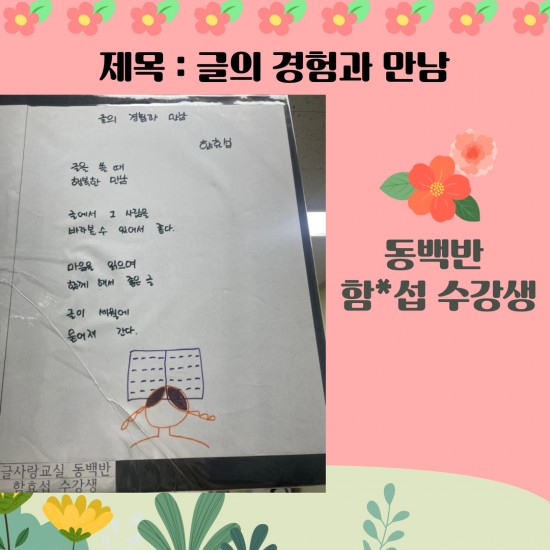 제목 : 글의 경험과 만남
글의 경험과 만남
함효섭
글은 쓸 때
행복한 만남
글에서 그 사람을
바라볼 수 있어서 좋다.
마음을 읽으며
함께 해서 좋은 글
글이 세월에
묻어져 간다.
글사랑교실 동백반
함효섭 수강생
동백반
함*섭 수강생